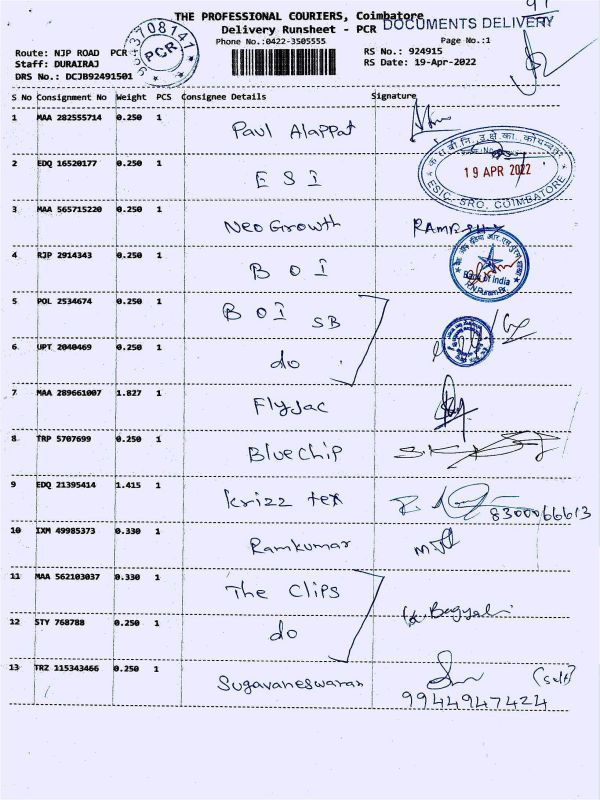 91
THE PROFESSIONAL COURIERS, Coimbatore
DOCUMENTS DELIVERY
Delivery Runsheet - PCR
Phone No.:0422-3505555
Page No.:1
9843708141
PCR
Route: NJP ROAD PCR
RS No.: 924915
Staff: DURAIRAJ
RS Date: 19-Apr-2022
DRS No.: DCJB92491501
S No Consignment No Weight PCS Consignee Details Signature
1 MAA 282555714 0.250 1 Paul Alappat
2 EDQ 16520177 0.250 1 E S I
19 APR 2022
ESIC, SRO, COIMBATORE
3 MAA 565715220 0.250 1 Neo Growth RAMESH
4 RJP 2914343 0.250 1 B O I
Bank of India
R.N.Puram Br.
5 POL 2534674 0.250 1 B O I SB
6 UPT 2040469 0.250 1 do
7 MAA 289661007 1.827 1 Flyjac
8 TRP 5707699 0.250 1 Bluechip
9 EDQ 21395414 1.415 1 Krizz tex
8300066613
10 IXM 49985373 0.330 1 Ramkumar
11 MAA 562103037 0.330 1 The Clips
12 STY 768788 0.250 1 do
13 TRZ 115343466 0.250 1 Sugavaneswaran (self)
9944947424